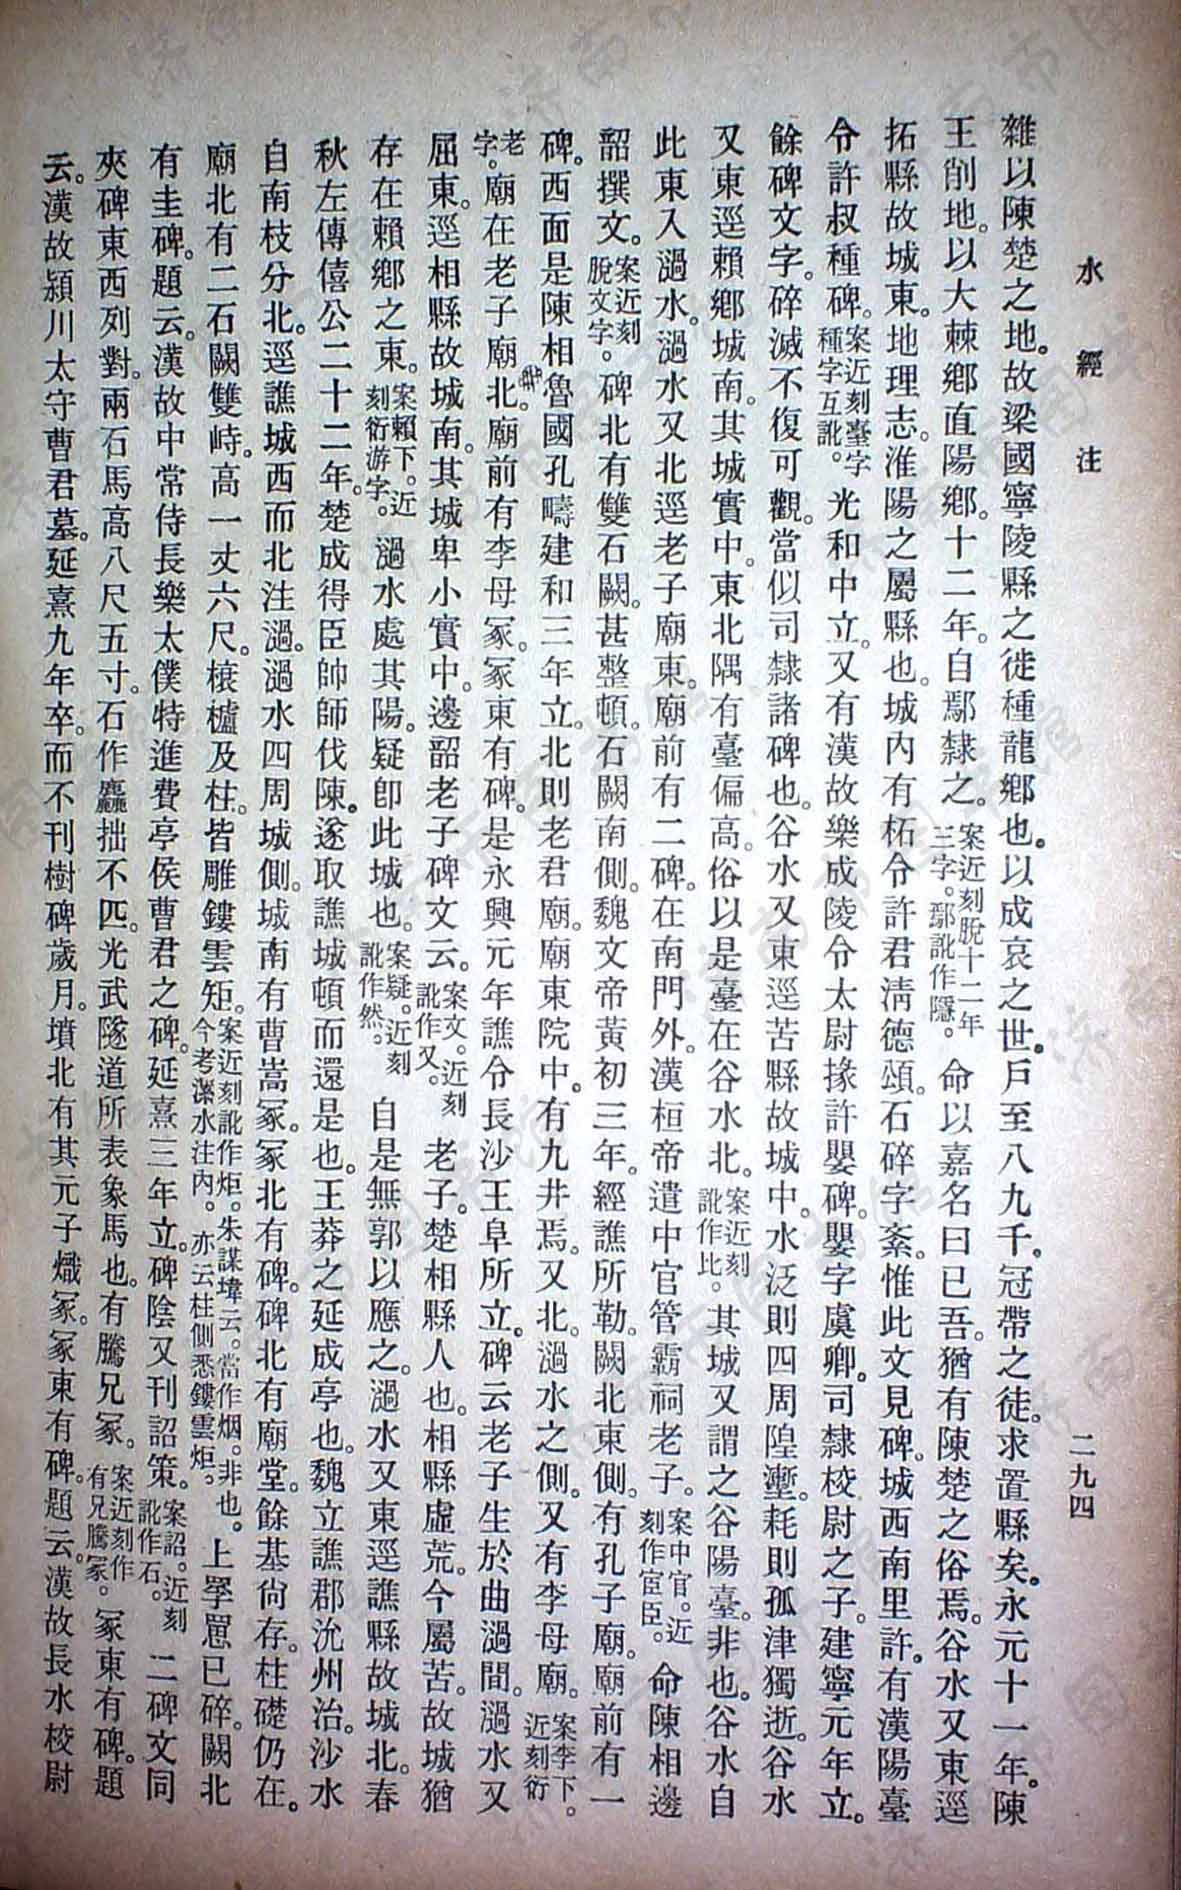 水經注
二九四
雜以陳楚之地。故梁國寧陵縣之徙種龍鄉也。以成哀之世。戶至八九千。冠帶之徒。求置縣矣。永元十一年。陳
王削地。以大棘鄉直陽鄉。十二年。自鄢隸之。案近刻脫十二年三字。鄢訛作隱。命以嘉名曰巳吾。猶有陳楚之俗焉。谷水又東逕
拓縣故城東。地理志。淮陽之屬縣也。城內有柘令許君清德頌。石碎字紊。惟此文見碑。城西南里許。有漢陽臺
令許叔種碑。案近刻臺字種字互訛。光和中立。又有漢故樂成陵令太尉掾許嬰碑。嬰字虞卿。司隸校尉之子。建寧元年立。
餘碑文字。碎滅不復可觀。當似司隸諸碑也。谷水又東逕苦縣故城中。水泛則四周隍壍。耗則孤津獨逝。谷水
又東逕賴鄉城南。其城實中。東北隅有臺偏高。俗以是臺在谷水北。案近刻訛作比。其城又謂之谷陽臺。非也。谷水自
此東入濄水。濄水又北逕老子廟東。廟前有二碑。在南門外。漢桓帝遣中官管霸祠老子。案中官。近刻作宦臣。命陳相邊
韶撰文。案近刻脫文字。碑北有雙石闕。甚整頓。石闕南側。魏文帝黃初三年。經譙所勒。闕北東側。有孔子廟。廟前有一
碑。西面是陳相魯國孔疇建和三年立。北則老君廟。廟東院中。有九井焉。又北。濄水之側。又有李母廟。案李下。近刻衍
老字。廟在老子廟北。廟前有李母冢。冢東有碑。是永興元年譙令長沙王阜所立。碑云老子生於曲濄間。濄水又
屈東。逕相縣故城南。其城卑小實中。邊韶老子碑文云。案文。近刻訛作又。老子。楚相縣人也。相縣虛荒。今屬苦。故城猶
存在賴鄉之東。案賴下。近刻衍游字。濄水處其陽。疑即此城也。案疑。近刻訛作然。自是無郭以應之。濄水又東逕譙縣故城北。春
秋左傳僖公二十二年。楚成得臣帥師伐陳。遂取譙城頓而還是也。王莽之延成亭也。魏立譙郡沇州治。沙水
自南枝分北。逕譙城西而北注濄。濄水四周城側。城南有曹嵩冢。冢北有碑。碑北有廟堂。餘基尚存。柱礎仍在。
廟北有二石闕雙峙。高一丈六尺。榱櫨及柱。皆雕鏤雲矩。案近刻訛作炬。朱謀㙔云。當作烟。非也。今考㶟水注內。亦云柱側悉鏤雲炬。上罦罳已碎。闕北
有圭碑。題云。漢故中常侍長樂太僕特進費亭侯曹君之碑。延熹三年立。碑陰又刊詔策。案詔。近刻訛作石。二碑文同
夾碑東西列對。兩石馬高八尺五寸。石作麤拙不匹。光武隧道所表象馬也。有騰兄冢。案近刻作有兄騰冢。冢東有碑。題
云。漢故潁川太守曹君墓。延熹九年卒。而不刊樹碑歲月。墳北有其元子熾冢。冢東有碑。題云。漢故長水校尉